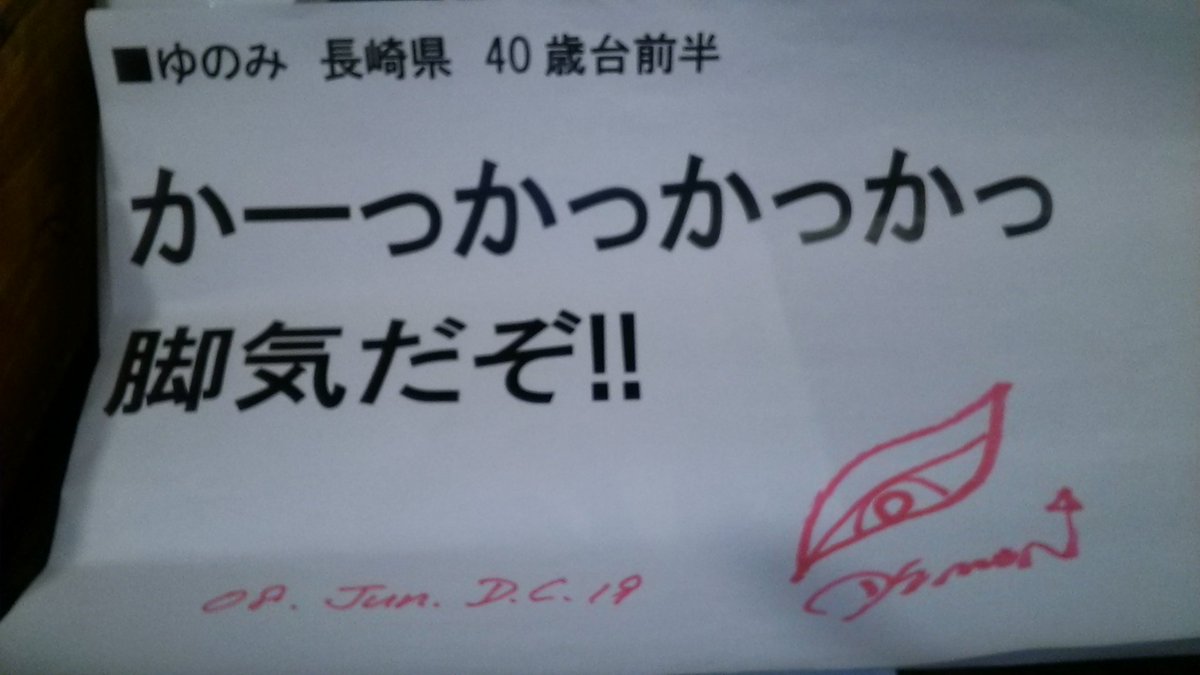 ■ゆのみ 長崎県 40歳台前半
かーっかっかっかっ
脚気だぞ!!
08. Jun. D.C.19
Damon